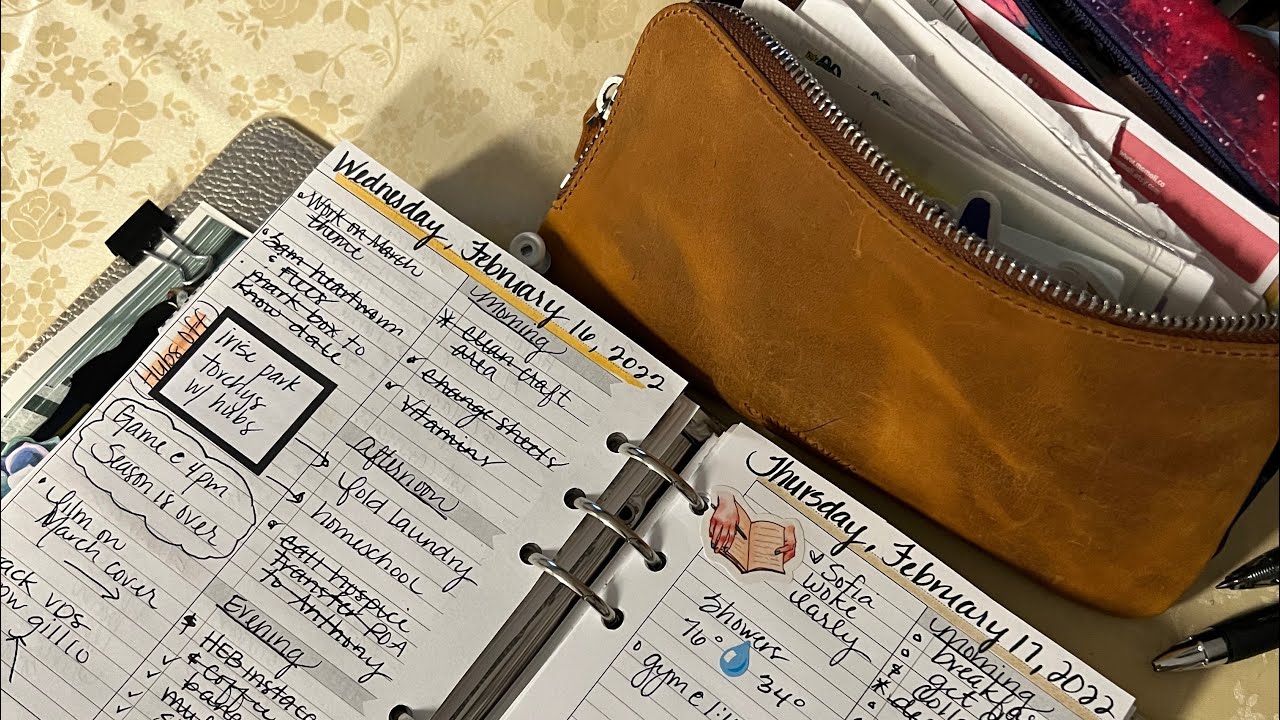 Wednesday, February 16, 2022
Work on March
theme
Sam heartworm
& FLEX
mark box to
know date
Hubs off
Irise park
torchlus
w/ hubs
Game @ 4pm
Season is over
film on
March cover
ack VDS
ow gillio
Morning
clean craft
area
change sheets
Vitamins
afternoon
fold laundry
homeschool
call hospice
Transfer ROA
to Anthony
Evening
HEB Instac
& coffee
Thursday, February 17, 2022
Sofia
woke
early
Showers
76° 34°
gyme 1:1
morning
breakfa
get
www.mcmail.co